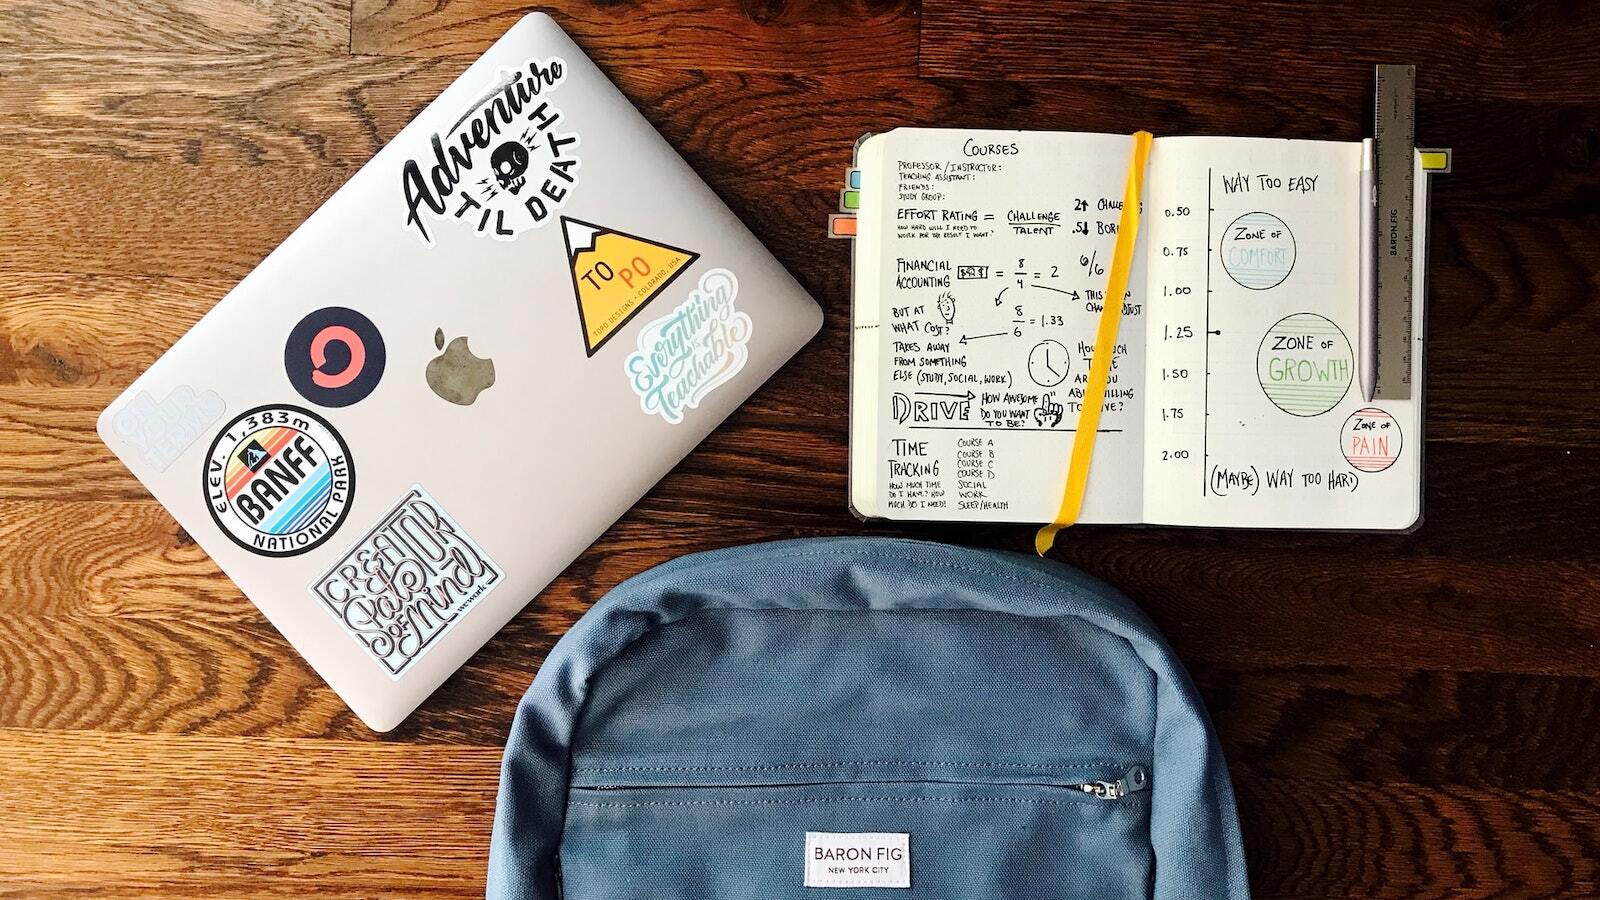 Adventure
TIL DEATH
TO PO
TOPO DESIGNS • COLORADO, USA
Everything
is
Teachable
ELEV. 1,383m
BANFF
NATIONAL PARK
CREATOR
State
OF Mind
wework
COURSES
PROFESSOR / INSTRUCTOR:
TEACHING ASSISTANT:
FRIENDS:
STUDY GROUP:
EFFORT RATING = CHALLENGE
TALENT
HOW HARD WILL I NEED TO
WORK FOR THE RESULT I WANT?
2↑
.5↓
FINANCIAL
ACCOUNTING
= 8/4 = 2
6/6
BUT AT
WHAT COST?
8/6 = 1.33
THIS
TAKES AWAY
FROM SOMETHING
ELSE (STUDY, SOCIAL, WORK)
DRIVE
HOW AWESOME
DO YOU WANT
TO BE?
TIME
TRACKING
HOW MUCH TIME
DO I HAVE? HOW
MUCH DO I NEED?
COURSE A
COURSE B
COURSE C
COURSE D
SOCIAL
WORK
SLEEP/HEALTH
WAY TOO EASY
0.50
0.75
1.00
1.25
1.50
1.75
2.00
ZONE OF
COMFORT
ZONE OF
GROWTH
ZONE OF
PAIN
(MAYBE) WAY TOO HARD
BARON FIG
BARON FIG
NEW YORK CITY